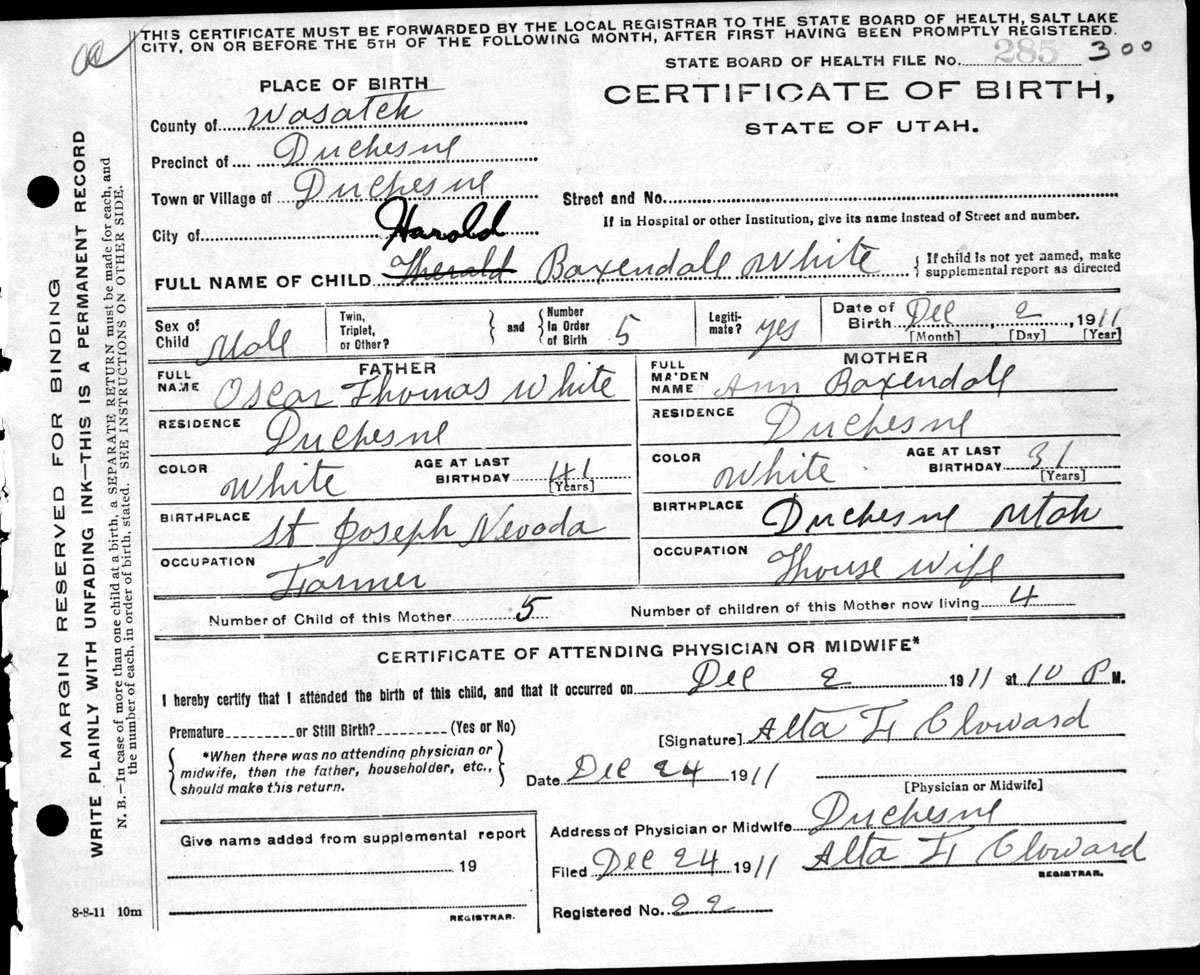 THIS CERTIFICATE MUST BE FORWARDED BY THE LOCAL REGISTRAR TO THE STATE BOARD OF HEALTH, SALT LAKE
CITY, ON OR BEFORE THE 5TH OF THE FOLLOWING MONTH, AFTER FIRST HAVING BEEN PROMPTLY REGISTERED.
STATE BOARD OF HEALTH FILE No. 285 300
PLACE OF BIRTH
CERTIFICATE OF BIRTH,
STATE OF UTAH.
County of Wasatch
Precinct of Duchesne
Town or Village of Duchesne
Street and No.
If in Hospital or other Institution, give its name instead of Street and number.
City of
Harold
FULL NAME OF CHILD Therald Baxendall White
{ If child is not yet named, make
supplemental report as directed
Sex of Child Male
Twin, Triplet, or Other? } and { Number In Order of Birth 5
Legiti-mate? yes
Date of Birth Dec 2, 1911
[Month] [Day] [Year]
FATHER
MOTHER
FULL NAME Oscar Thomas White
FULL MAIDEN NAME Ann Baxendall
RESIDENCE Duchesne
RESIDENCE Duchesne
COLOR White AGE AT LAST BIRTHDAY 41 [Years]
COLOR White AGE AT LAST BIRTHDAY 31 [Years]
BIRTHPLACE St Joseph Nevada
BIRTHPLACE Duchesne Utah
OCCUPATION Farmer
OCCUPATION House Wife
Number of Child of this Mother 5 Number of children of this Mother now living 4
CERTIFICATE OF ATTENDING PHYSICIAN OR MIDWIFE*
I hereby certify that I attended the birth of this child, and that it occurred on Dec 2 1911 at 10 P M.
Premature or Still Birth? (Yes or No)
[Signature] Alta F Cloward
{ *When there was no attending physician or
midwife, then the father, householder, etc.,
should make this return. }
Date Dec 24 1911
[Physician or Midwife]
Address of Physician or Midwife Duchesne
Give name added from supplemental report
19
REGISTRAR.
Filed Dec 24 1911 Alta F Cloward
REGISTRAR.
Registered No. 22
8-8-11 10m
MARGIN RESERVED FOR BINDING
WRITE PLAINLY WITH UNFADING INK—THIS IS A PERMANENT RECORD
N. B.—In case of more than one child at a birth, a SEPARATE RETURN must be made for each, and
the number of each, in order of birth, stated. SEE INSTRUCTIONS ON OTHER SIDE.